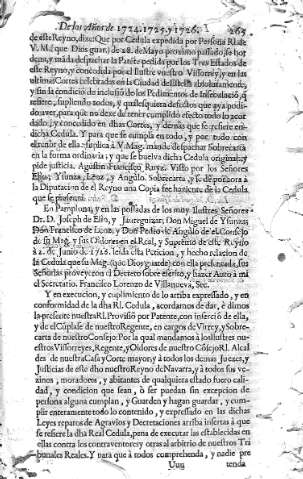 De los Años de 1724. 1725. y 1726. 265
de este Reyno, dize: Que por Cedula expedida por Persona Rl. de
V. Mag. que Dios guarde, de 28. de Mayo proximo passado, se hor-
dena, y manda despachar la Patente pedida por los Tres Estados de
este Reyno, y concedida por el Ilustre vuestro Visorrey, y en las
ultimas Cortes celebradas en la Ciudad de
y sin la condicion de inclusion de los Pedimentos de Insaculacion
refiere, supliendo todos, y qualesquiera defectos que aya podi-
do aver, para que no dexe de tener cumplido efecto todo lo acor-
dado, y concedido en dhas Cortes, y demás que se refiere en
dicha Cedula. Y para que se execute en todo, y por todo con
el tenor de ella: suplica à V. Mag. mande despachar Sobrecarta
en la forma ordinaria, y que se buelva dicha Cedula original; y
pide justicia. Agustin Francisco Visto por los Señores
Elio, Ysunza, Leoz, y Angulo. Sobrecarta, y se de
la Diputacion de el Reyno una Copia fee haciente de la Cedula
que se
En Pamplona, y en las posadas de los muy Ilustres Señores
Dr. D. Joseph de Elio, y Jaureguizar; Don Miguel de Ysunza;
Don Francisco de Leoz, y Don Pedro de Angulo de el Consejo
de su Mag. y sus Oidores en el Real, y Supremo de este Reyno
à 2. de Junio de 1725. leida esta Peticion, y hecho relacion de
la Cedula que su Mag. (que Dios guarde) con ella presentada, sus
Señorias proveyeron el Decreto sobreescrito, y hacer Auto à mi
el Secretario. Francisco Lorenzo de Villanueva, Sec.
Y en execucion, y cumplimiento de lo arriba expressado, y en
conformidad de la dha Rl. Cedula, acordamos de dar, è dimos
la presente nuestra Rl. Provision por Patente, con insercion de ella,
y de el Cumplase de nuestro Regente, en cargos de Virrey, y Sobre-
carta de nuestro Consejo: Por la qual mandamos à los Ilustres nu-
estros Visorreyes, Regente, y Oidores de nuestro Consejo Rl. Alcal-
des de nuestra Casa y Corte mayor; y à todos los demas Jueces, y
Justicias de este dho nuestro Reyno de Navarra, y à todos sus ve-
cinos, moradores, y abitantes de qualquiera estado fuero cali-
dad, y condicion que sean, ò ser puedan sin excepcion de
persona alguna cumplan, y Guarden y hagan guardar, y cum-
plir enteramente todo lo contenido, y expressado en las dichas
Leyes reparos de Agravios y Decretaciones arriba insertas à que
se refiere la dha Real Cedula, pena de executar las establecidas en
ellas contra los contraventores y otras al arbitrio de nuestros Tri-
bunales Reales. Y para que à todos comprehenda, y nadie pre
Uuu tenda